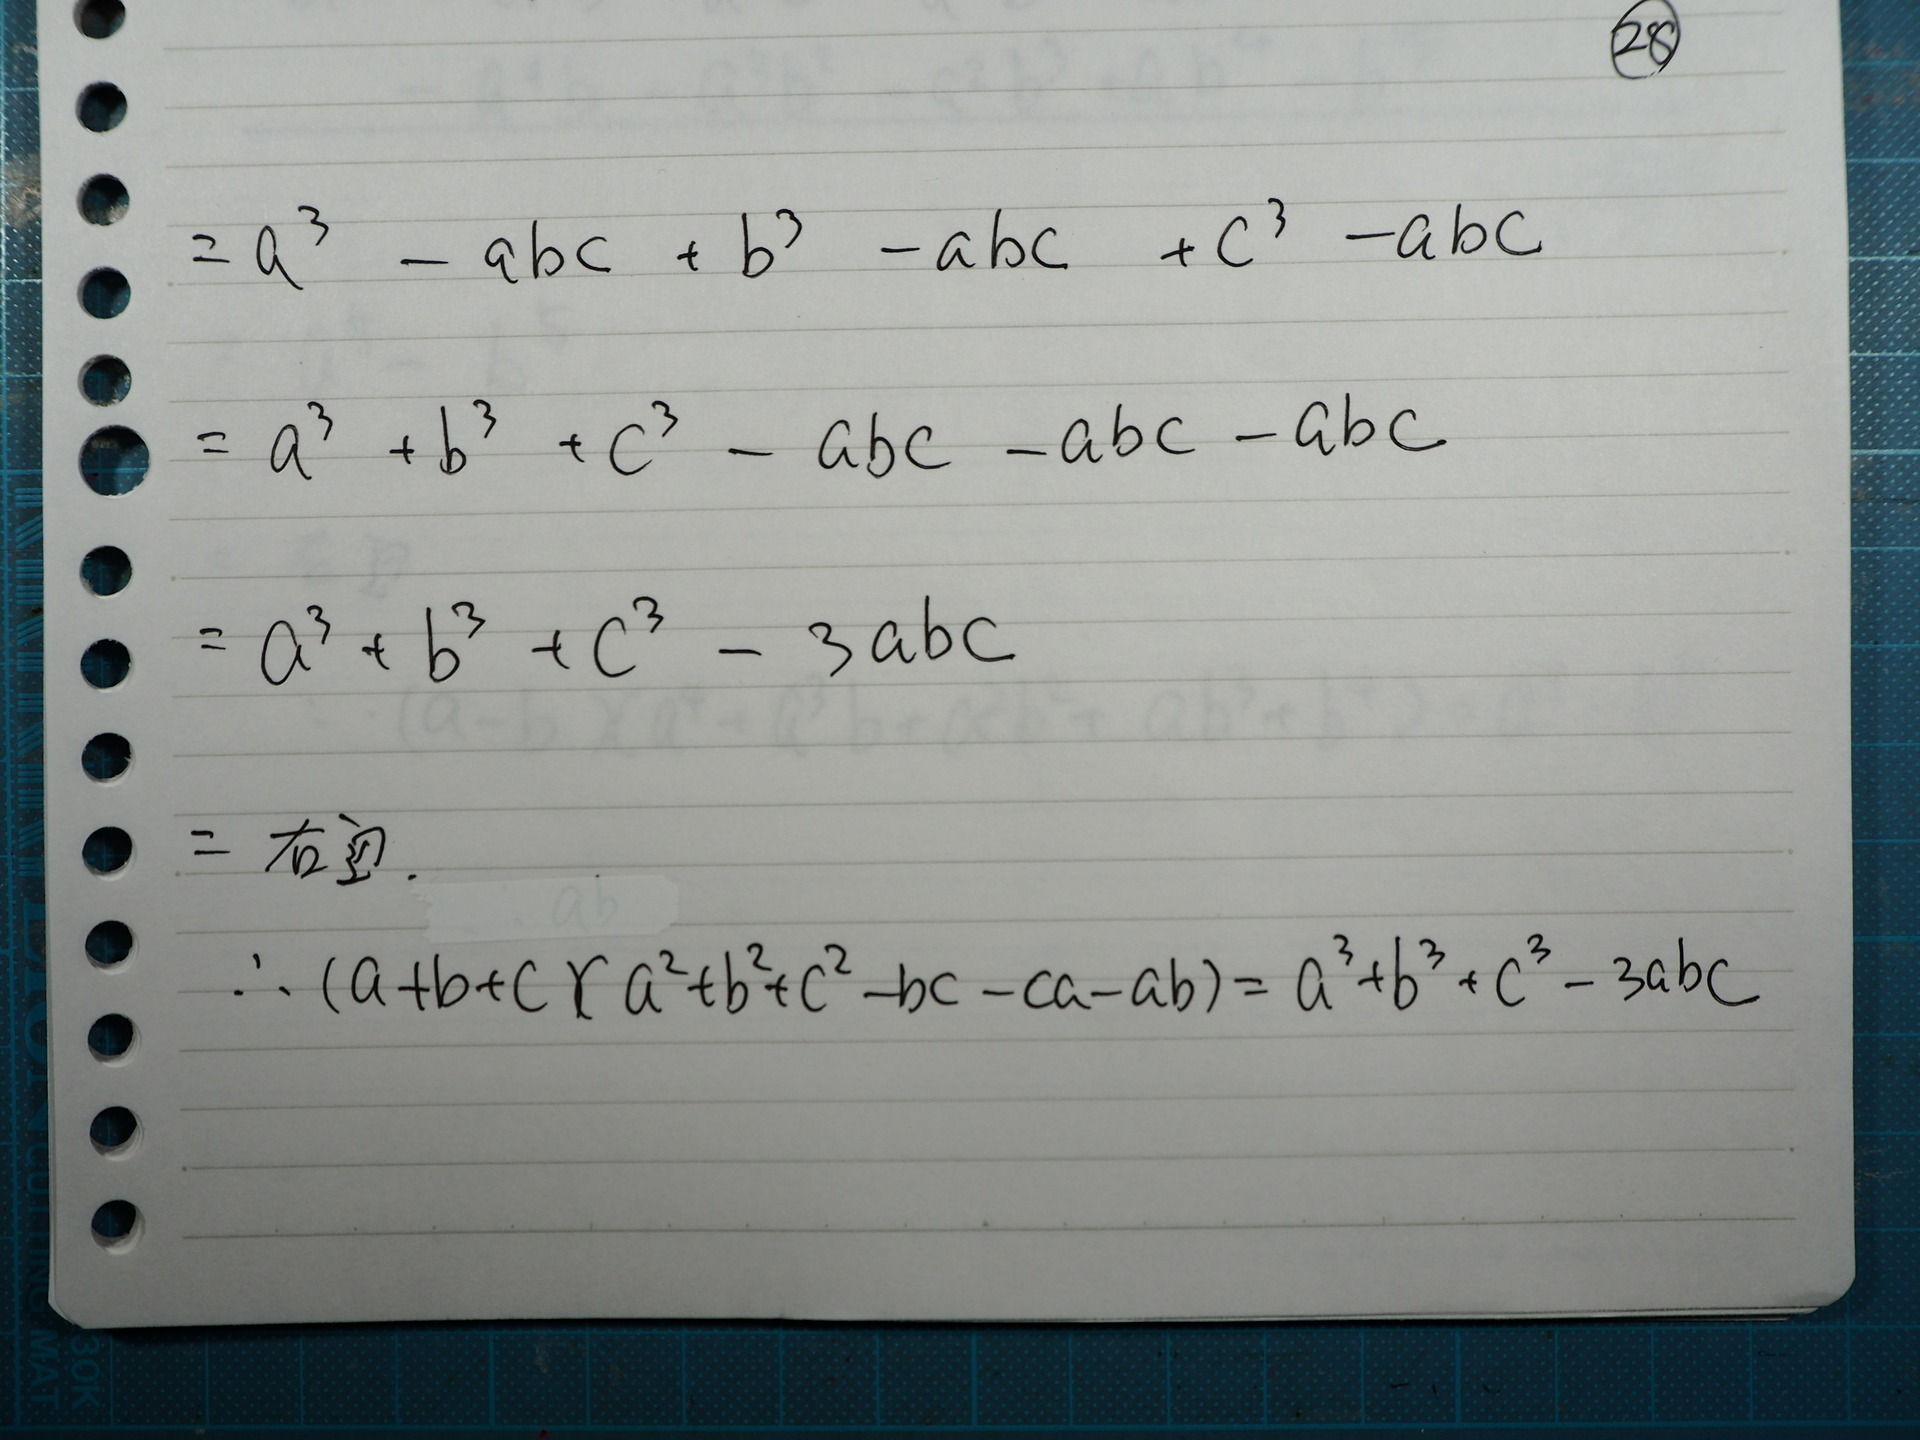 28
= a³ - abc + b³ - abc + c³ - abc
= a³ + b³ + c³ - abc - abc - abc
= a³ + b³ + c³ - 3abc
= 右辺.
∴ (a+b+c)(a²+b²+c²-bc-ca-ab) = a³+b³+c³-3abc